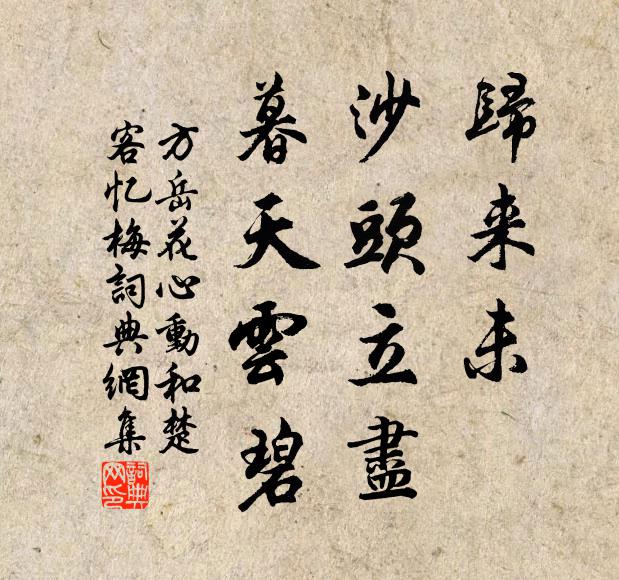 歸来未
沙頭立盡
暮天雲碧
方岳花心動和楚
客忆梅詞典網集
詞典网印